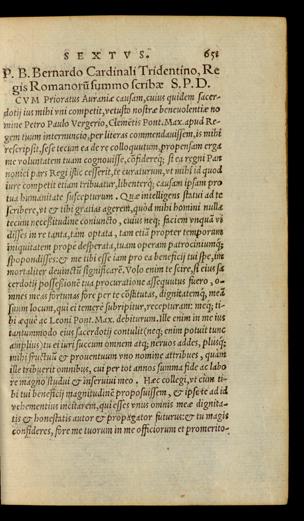 SEXTVS. 651
P. B. Bernardo Cardinali Tridentino, Re
gis Romanorũ summo scribæ S. P. D.
CVM Prioratus Auraniæ causam, cuius quidem sacer-
dotij ius mihi vni competit, vetusto nostræ beneuolentiæ no
mine Petro Paulo Vergerio, Clemẽtis Pont. Max. apud Re-
gem tuum internuncio, per literas commendauissem, is mihi
rescripsit, sese tecum ea de re colloquutum, propensam erga
me voluntatem tuam cognouisse, cõfidereq; si ea regni Pan
nonici pars Regi isti cesserit, te curaturum, vt mihi id quod
iure competit etiam tribuatur, libenterq; causam ipsam pro
tua humanitate suscepturum. Quæ intelligens statui ad te
scribere, vt & tibi gratias agerem, quòd mihi homini nulla
tecum necessitudine coniuncto, cuius neq; faciem vnquã vi
disses in re tanta, tam optata, tam etiã propter temporum
iniquitatem propè desperata, tuam operam patrociniumq;
spopondisses: & me tibi esse iam pro ea beneficij tui spe, im
mortaliter deuinctũ significarẽ. Volo enim te scire, si eius sa
cerdotij possessionẽ tua procuratione assequutus fuero, o-
mnes meas fortunas fore per te cõstitutas, dignitatemq́, meã
suum locum, qui ei temerè subripitur, recepturam: meq; ti-
bi æquè ac Leoni Pont. Max. debiturum. Ille enim in me ius
tantummodo eius sacerdotij contulit (neq; enim potuit tunc
amplius) tu ei iuri succum omnem atq; neruos addes, plusq;
mihi fructuũ & prouentuum vno nomine attribues, quàm
ille tribuerit omnibus, cui per tot annos summa fide ac labo
re magno studui & inseruiui meo. Hæc collegi, vt cùm ti-
bi tui beneficij magnitudinẽ proposuissem, & ipse te ad id
vehementius incitarem, qui esses vnus omnis meæ dignita-
tis & honestatis autor & propagator futurus: & tu magis
confideres, fore me tuorum in me officiorum et promerito-